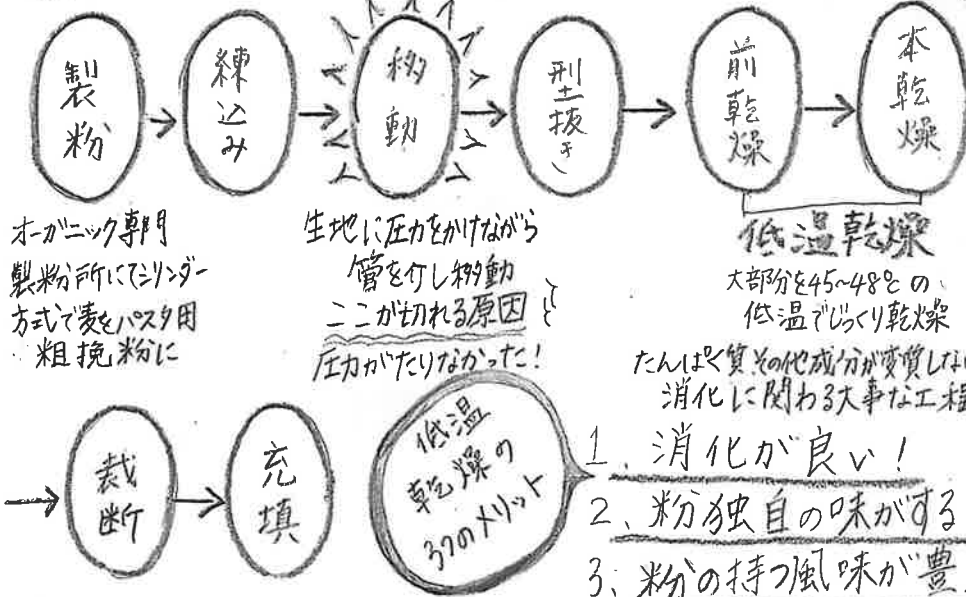 製粉
練込み
移動
型抜き
前乾燥
本乾燥
オーガニック専門
製粉所にてシリンダー
方式で麦をパスタ用
粗挽粉に
生地に圧力をかけながら
管を介し移動
ここが切れる原因
圧力がたりなかった!
低温乾燥
大部分を45~48℃の
低温でじっくり乾燥
たんぱく質その他成分が変質しない
消化に関わる大事な工程
裁断
充填
低温
乾燥の
3つのメリット
1、消化が良い!
2、粉独自の味がする
3、粉の持つ風味が豊